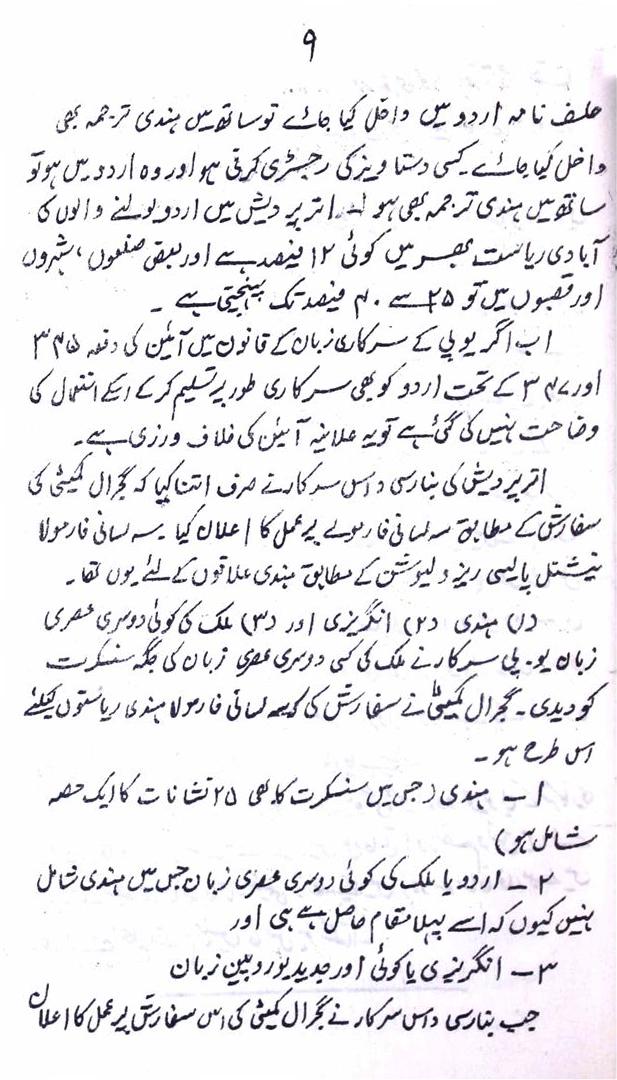 ۹
حلف نامہ اردو میں داخل کیا جائے تو ساتھ میں ہندی ترجمہ بھی
داخل کیا جائے کسی دستاویز کی رجسڑی کرتی ہو اور وہ اردو میں ہو تو
ساتھ میں ہندی ترجمہ بھی ہو اتر پردیش میں اردو بولنے والوں کی
آبادی ریاست بھر میں کوئی ۱۲ فیصد ہے اور بعض ضلعوں، شہروں
اور قصبوں میں تو ۲۵ سے ۴۰ فیصد تک پہنچتی ہے ۔
اب اگر یو پی کے سرکاری زبان کے قانون میں آئین کی دفعہ ۳۴۵
اور ۳۴۷ کے تحت اردو کو بھی سرکاری طور پر تسلیم کر کے اسکے استعمال کی
وضاحت نہیں کی گئی ہے تو یہ علانیہ آئین کی خلاف ورزی ہے ۔
اتر پردیش کی بنارسی داس سرکار نے صرف اتنا کیا کہ گجرال کمیٹی کی
سفارش کے مطابق سہ لسانی فارمولے پر عمل کا اعلان کیا ۔ سہ لسانی فارمولا
نیشنل پالیسی ریزولیوشن کے مطابق ہندی علاقوں کے لئے یوں تھا ۔
(۱) ہندی (۲) انگریزی اور (۳) ملک کی کوئی دوسری عصری
زبان یو ۔ پی سرکار نے ملک کی کسی دوسری عصری زبان کی جگہ سنسکرت
کو دیدی ۔ گجرال کمیٹی نے سفارش کی کہ سہ لسانی فارمولا ہندی ریاستوں کیلئے
اس طرح ہو ۔
۱ ۔ ہندی (جس میں سنسکرت کا بھی ۲۵ نشانات کا ایک حصہ
شامل ہو)
۲ ۔ اردو یا ملک کی کوئی دوسری عصری زبان جس میں ہندی شامل
نہیں کیوں کہ اسے پہلا مقام حاصل ہے ہی اور
۳ ۔ انگریزی یا کوئی اور جدید یوروپین زبان
جب بنارسی داس سرکار نے گجرال کمیٹی کی اس سفارش پر عمل کا اعلان